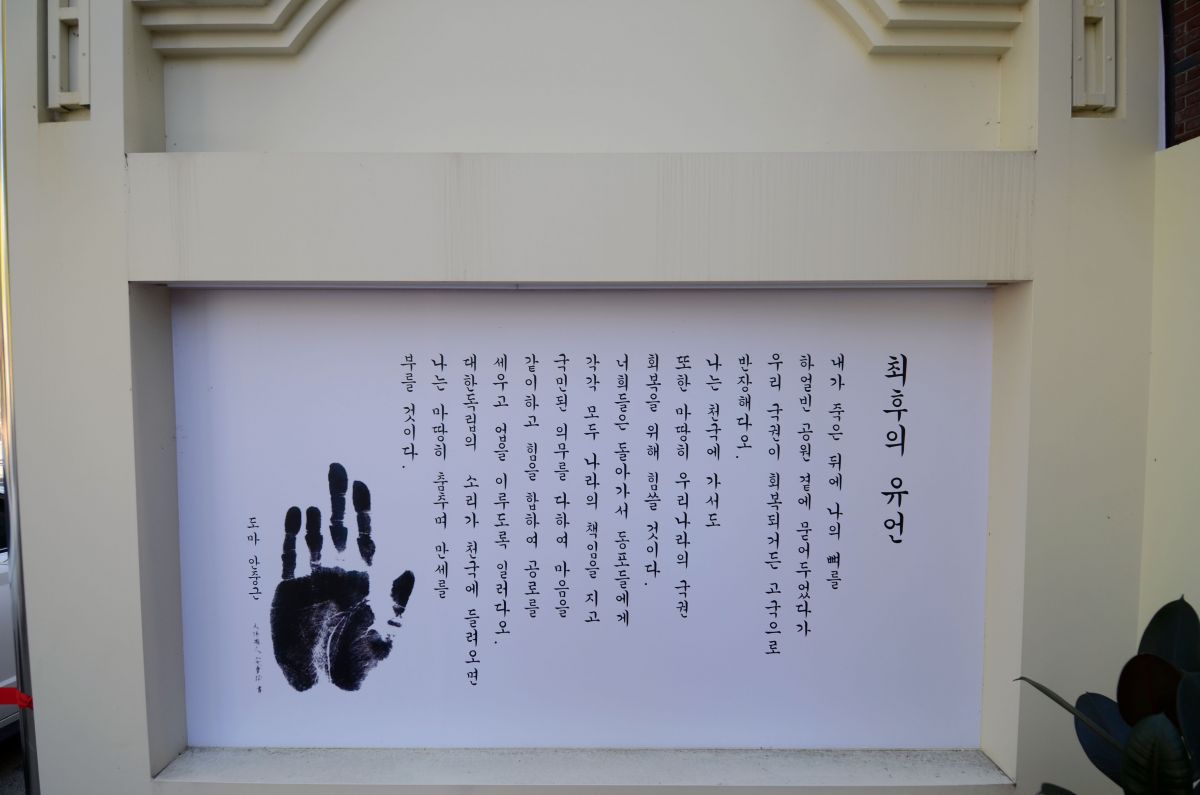 최후의 유언
내가 죽은 뒤에 나의 뼈를
하얼빈 공원 곁에 묻어두었다가
우리 국권이 회복되거든 고국으로
반장해다오.
나는 천국에 가서도
또한 마땅히 우리나라의 국권
회복을 위해 힘쓸 것이다.
너희들은 돌아가서 동포들에게
각각 모두 나라의 책임을 지고
국민된 의무를 다하여 마음을
같이하고 힘을 합하여 공로를
세우고 업을 이루도록 일러다오.
대한독립의 소리가 천국에 들려오면
나는 마땅히 춤추며 만세를
부를 것이다.
도마 안중근